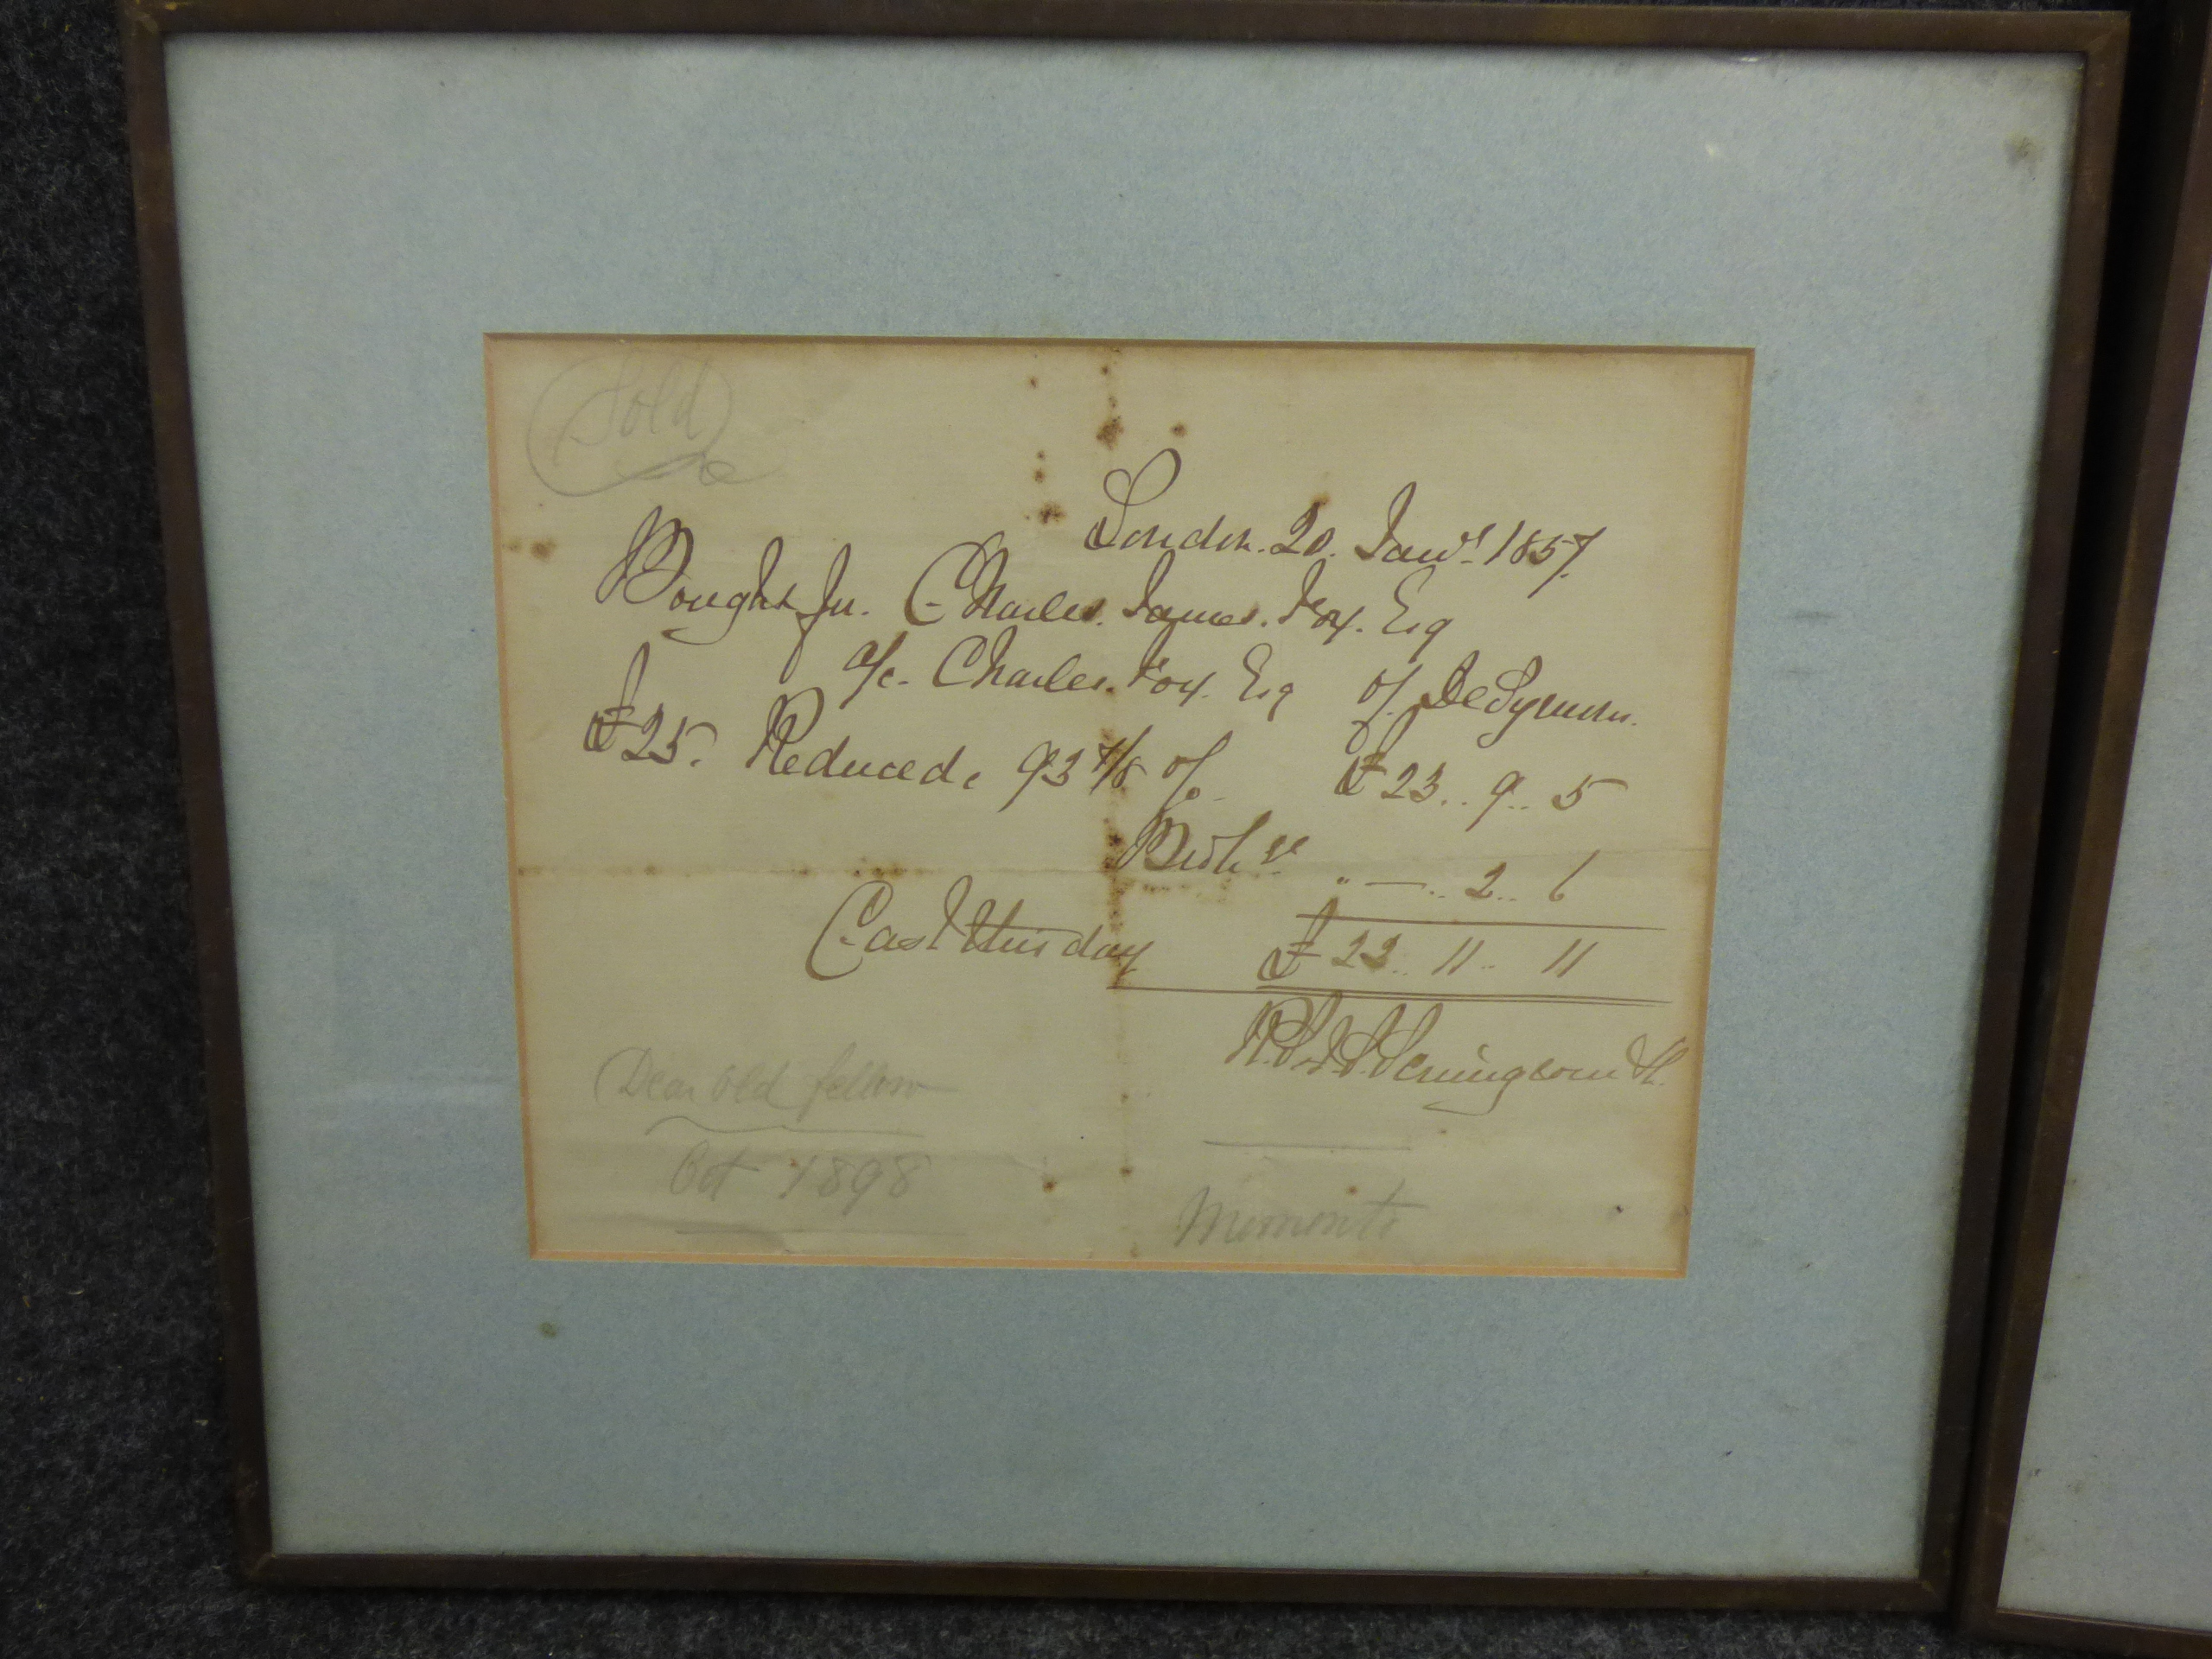 Sold
London. 20. Jany. 1857.
Bought for. Charles. James. Fox. Esq
a/c. Charles. Fox. Esq of
£25. Reduced. 93 7/8 %. £23.. 9.. 5
" — .. 2.. 6
Cash this day £ 23.. 11.. 11
Dear old fellow
Oct 1898
Memento